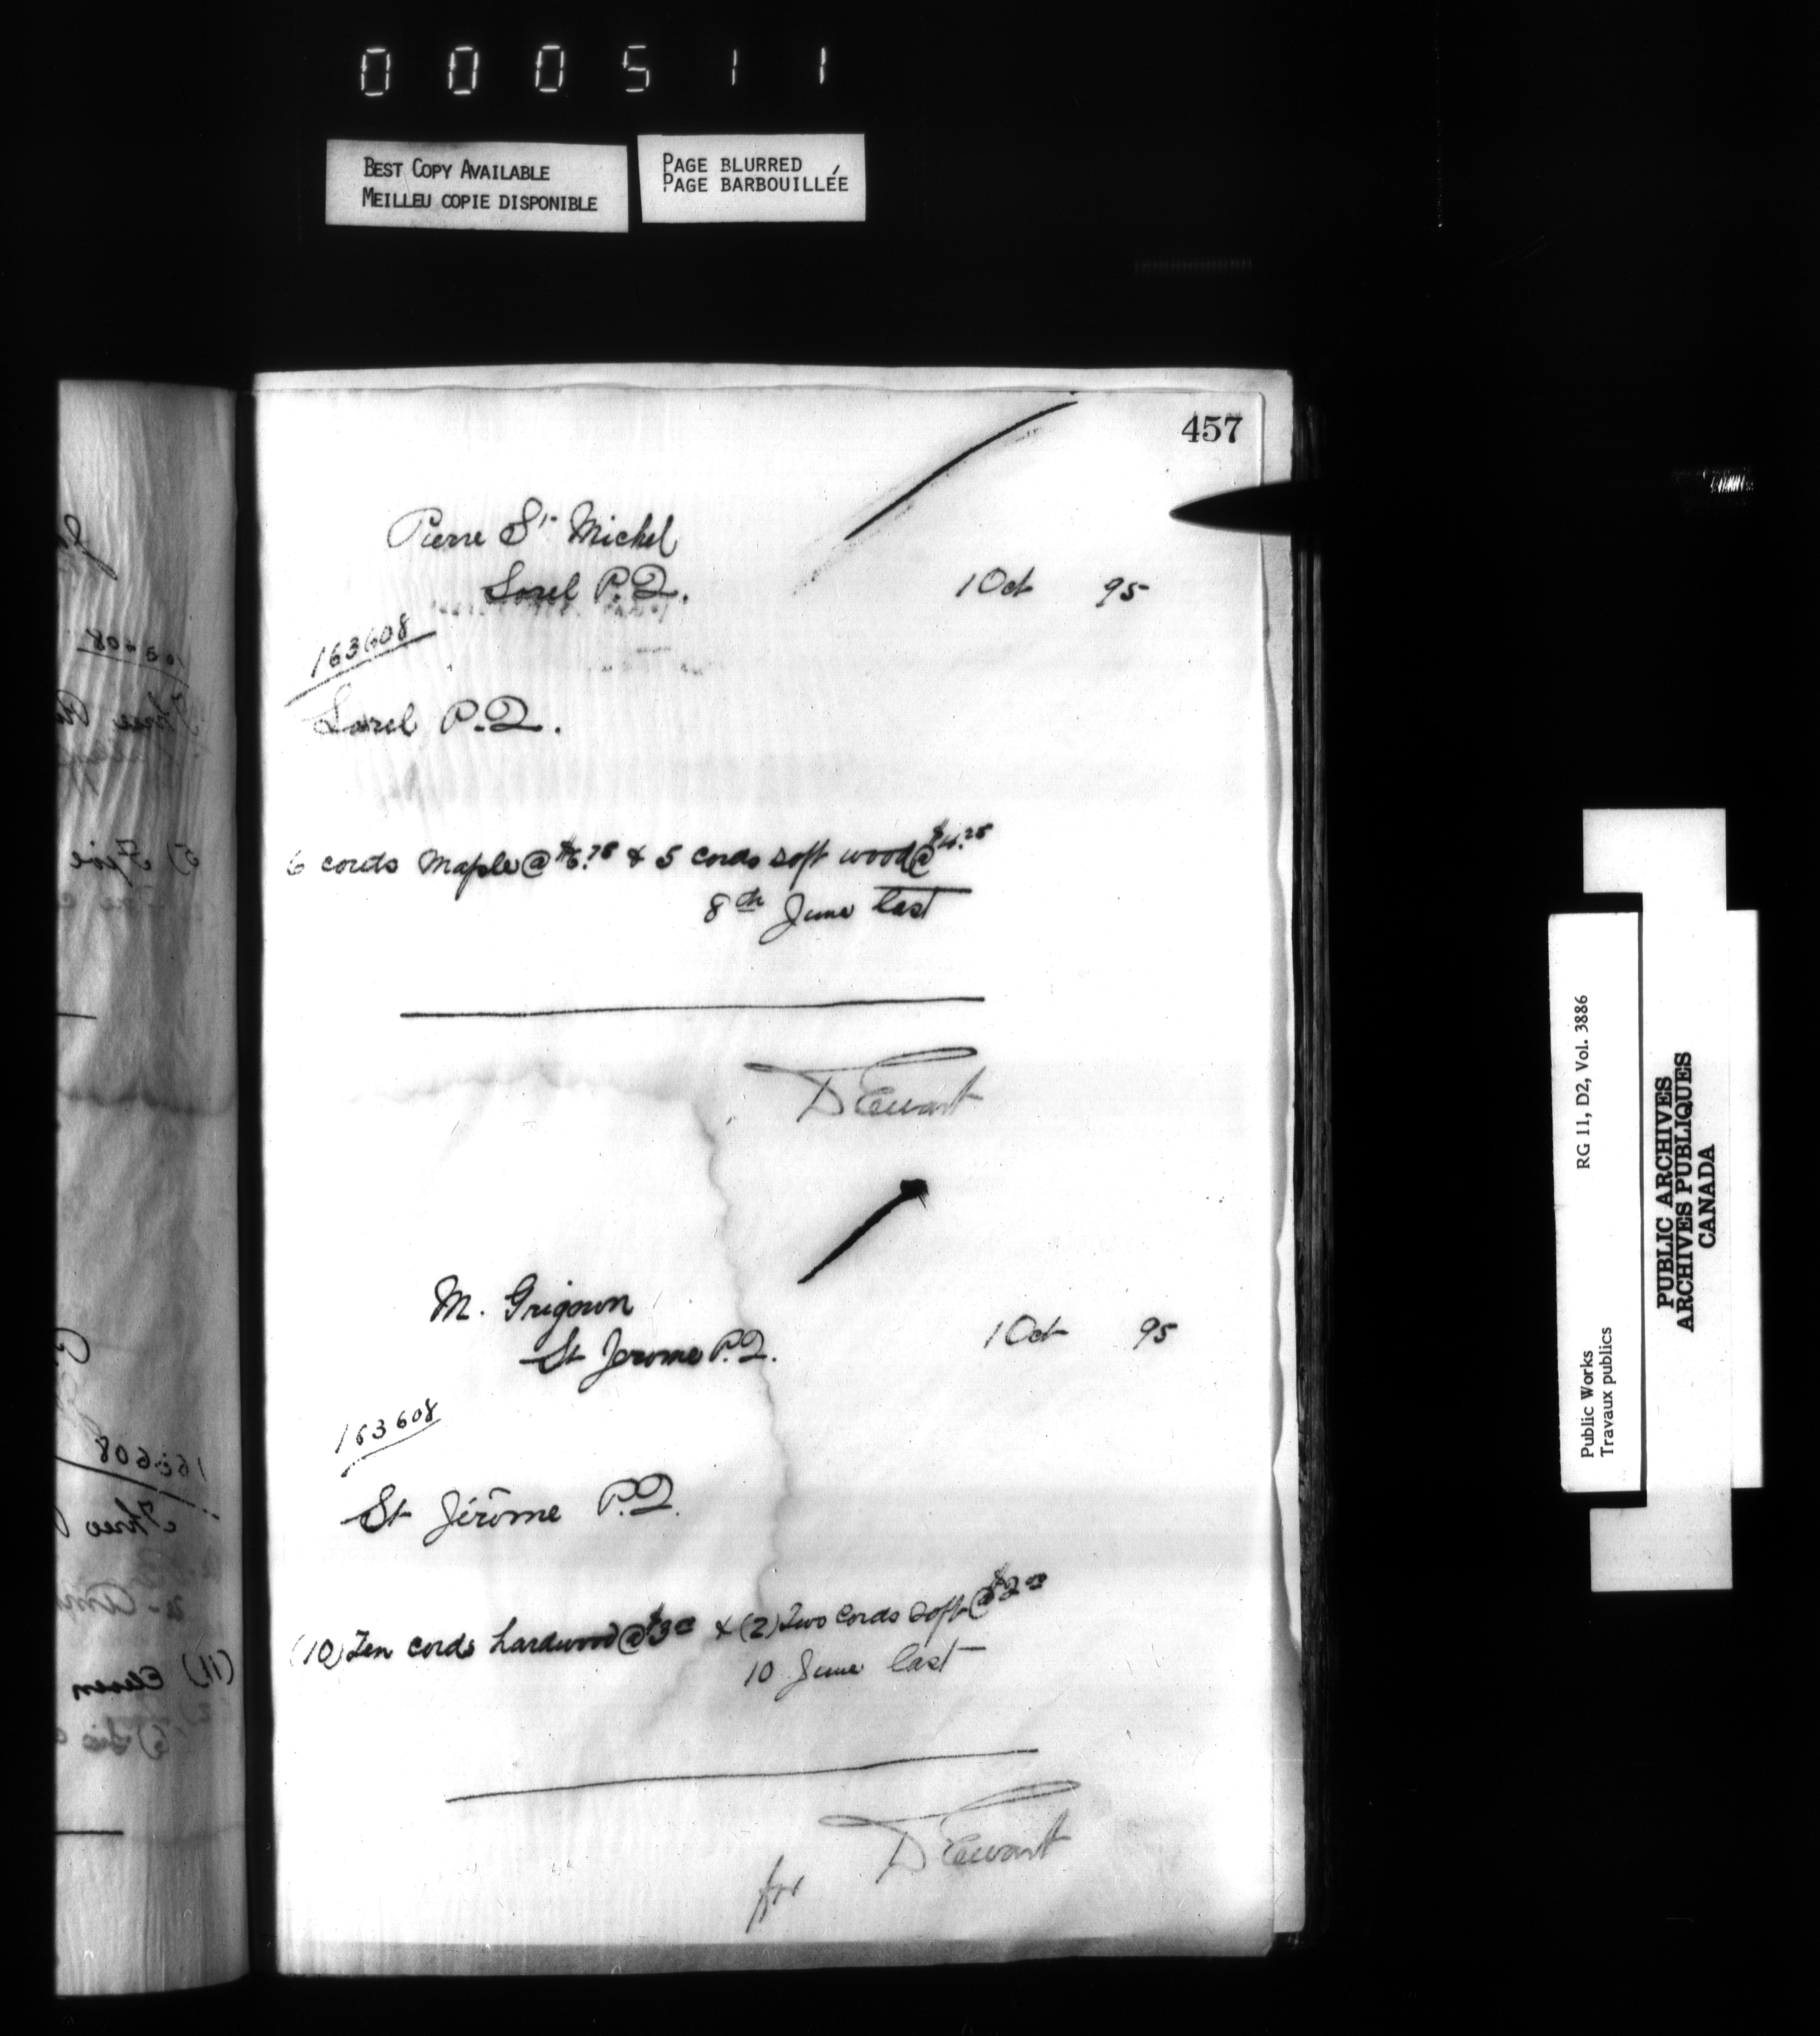 000511
BEST COPY AVAILABLE
MEILLEU COPIE DISPONIBLE
PAGE BLURRED
PAGE BARBOUILLÉE
457
Pierre St. Michel
Sorel P.Q.
1 Oct 95
163608
Sorel P.Q.
6 cords Maple @ & 5 cords soft wood @ $4.25
8th June last
D Ewart
M. Grignon
St Jerome P.Q.
1 Oct 95
163608
St Jérôme P.Q.
(10) Ten cords hardwood @ $3 & (2) Two cords soft @ $2.00
10 June last
D Ewart
for
RG 11, D2, Vol. 3886
Public Works
Travaux publics
PUBLIC ARCHIVES
ARCHIVES PUBLIQUES
CANADA